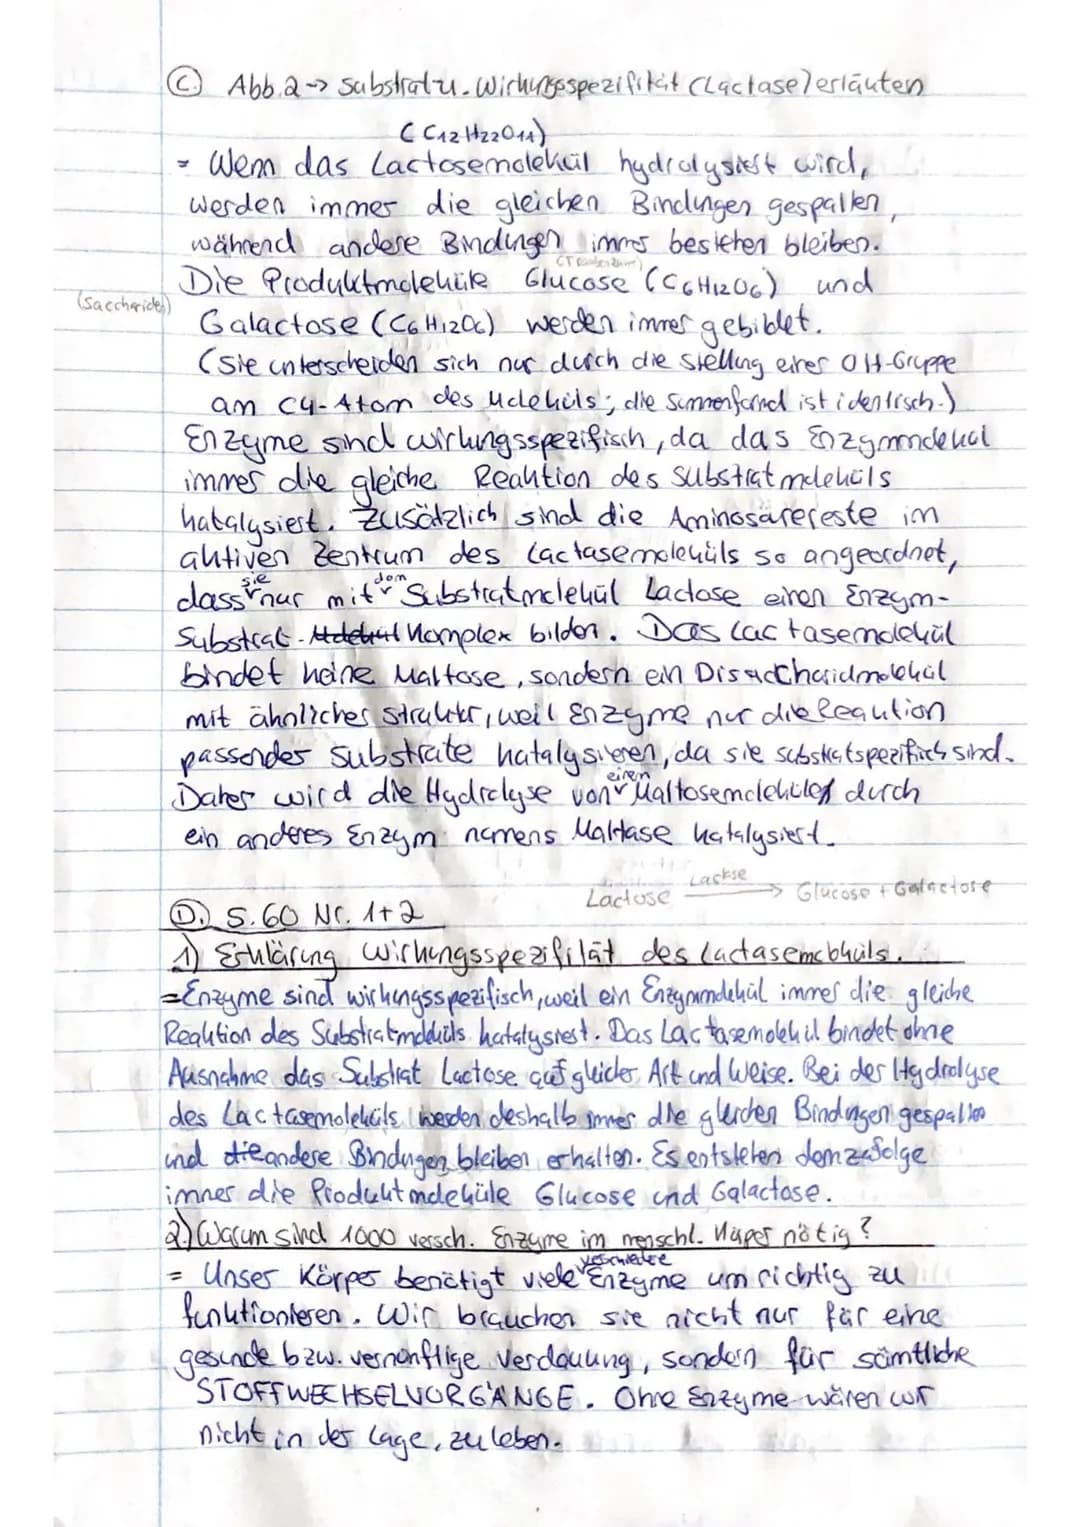 C.) Abb. 2 -> Substrat u. Wirkungsspezifität (Lactase) erläutern
(C12H22O11)
= Wenn das Lactosemolekül hydrolysiert wird,
werden immer die gleichen Bindungen gespalten,
während andere Bindungen immer bestehen bleiben.
(Traubenzucker)
Die Produktmoleküle Glucose (C6H12O6) und
(Saccharide)
Galactose (C6H12O6) werden immer gebildet.
(Sie unterscheiden sich nur durch die Stellung einer OH-Gruppe
am C4-Atom des Moleküls; die Summenformel ist identisch.)
Enzyme sind wirkungsspezifisch, da das Enzymmolekül
immer die gleiche Reaktion des Substratmoleküls
katalysiert. Zusätzlich sind die Aminosärereste im
aktiven Zentrum des Lactasemoleküls so angeordnet,
dass sie nur mit dem Substratmolekül Lactose einen Enzym-
Substrat-Komplex bilden. Das Lactasemolekül
bindet keine Maltose, sondern ein Disaccharidmolekül
mit ähnlicher Struktur, weil Enzyme nur die Reaktion
passender Substrate katalysieren, da sie substratspezifisch sind.
Daher wird die Hydrolyse von einem Maltosemoleküles durch
ein anderes Enzym namens Maltase katalysiert.
Lactose Lactase -> Glucose + Galactose
D.) S. 60 Nr. 1+2
1) Erklärung Wirkungsspezifität des Lactasemoleküls.
= Enzyme sind wirkungsspezifisch, weil ein Enzymmolekül immer die gleiche
Reaktion des Substratmoleküls katalysiert. Das Lactasemolekül bindet ohne
Ausnahme das Substrat Lactose auf gleicher Art und Weise. Bei der Hydrolyse
des Lactasemoleküls werden deshalb immer die gleichen Bindungen gespalten
und die andere Bindungen bleiben erhalten. Es entstehen demzufolge
immer die Produktmoleküle Glucose und Galactose.
2) Warum sind 1000 versch. Enzyme im menschl. Körper nötig?
= Unser Körper benötigt viele Enzyme um richtig zu
funktionieren. Wir brauchen sie nicht nur für eine
gesunde bzw. vernünftige Verdauung, sondern für sämtliche
STOFFWECHSELVORGÄNGE. Ohne Enzyme wären wir
nicht in der Lage, zu leben.